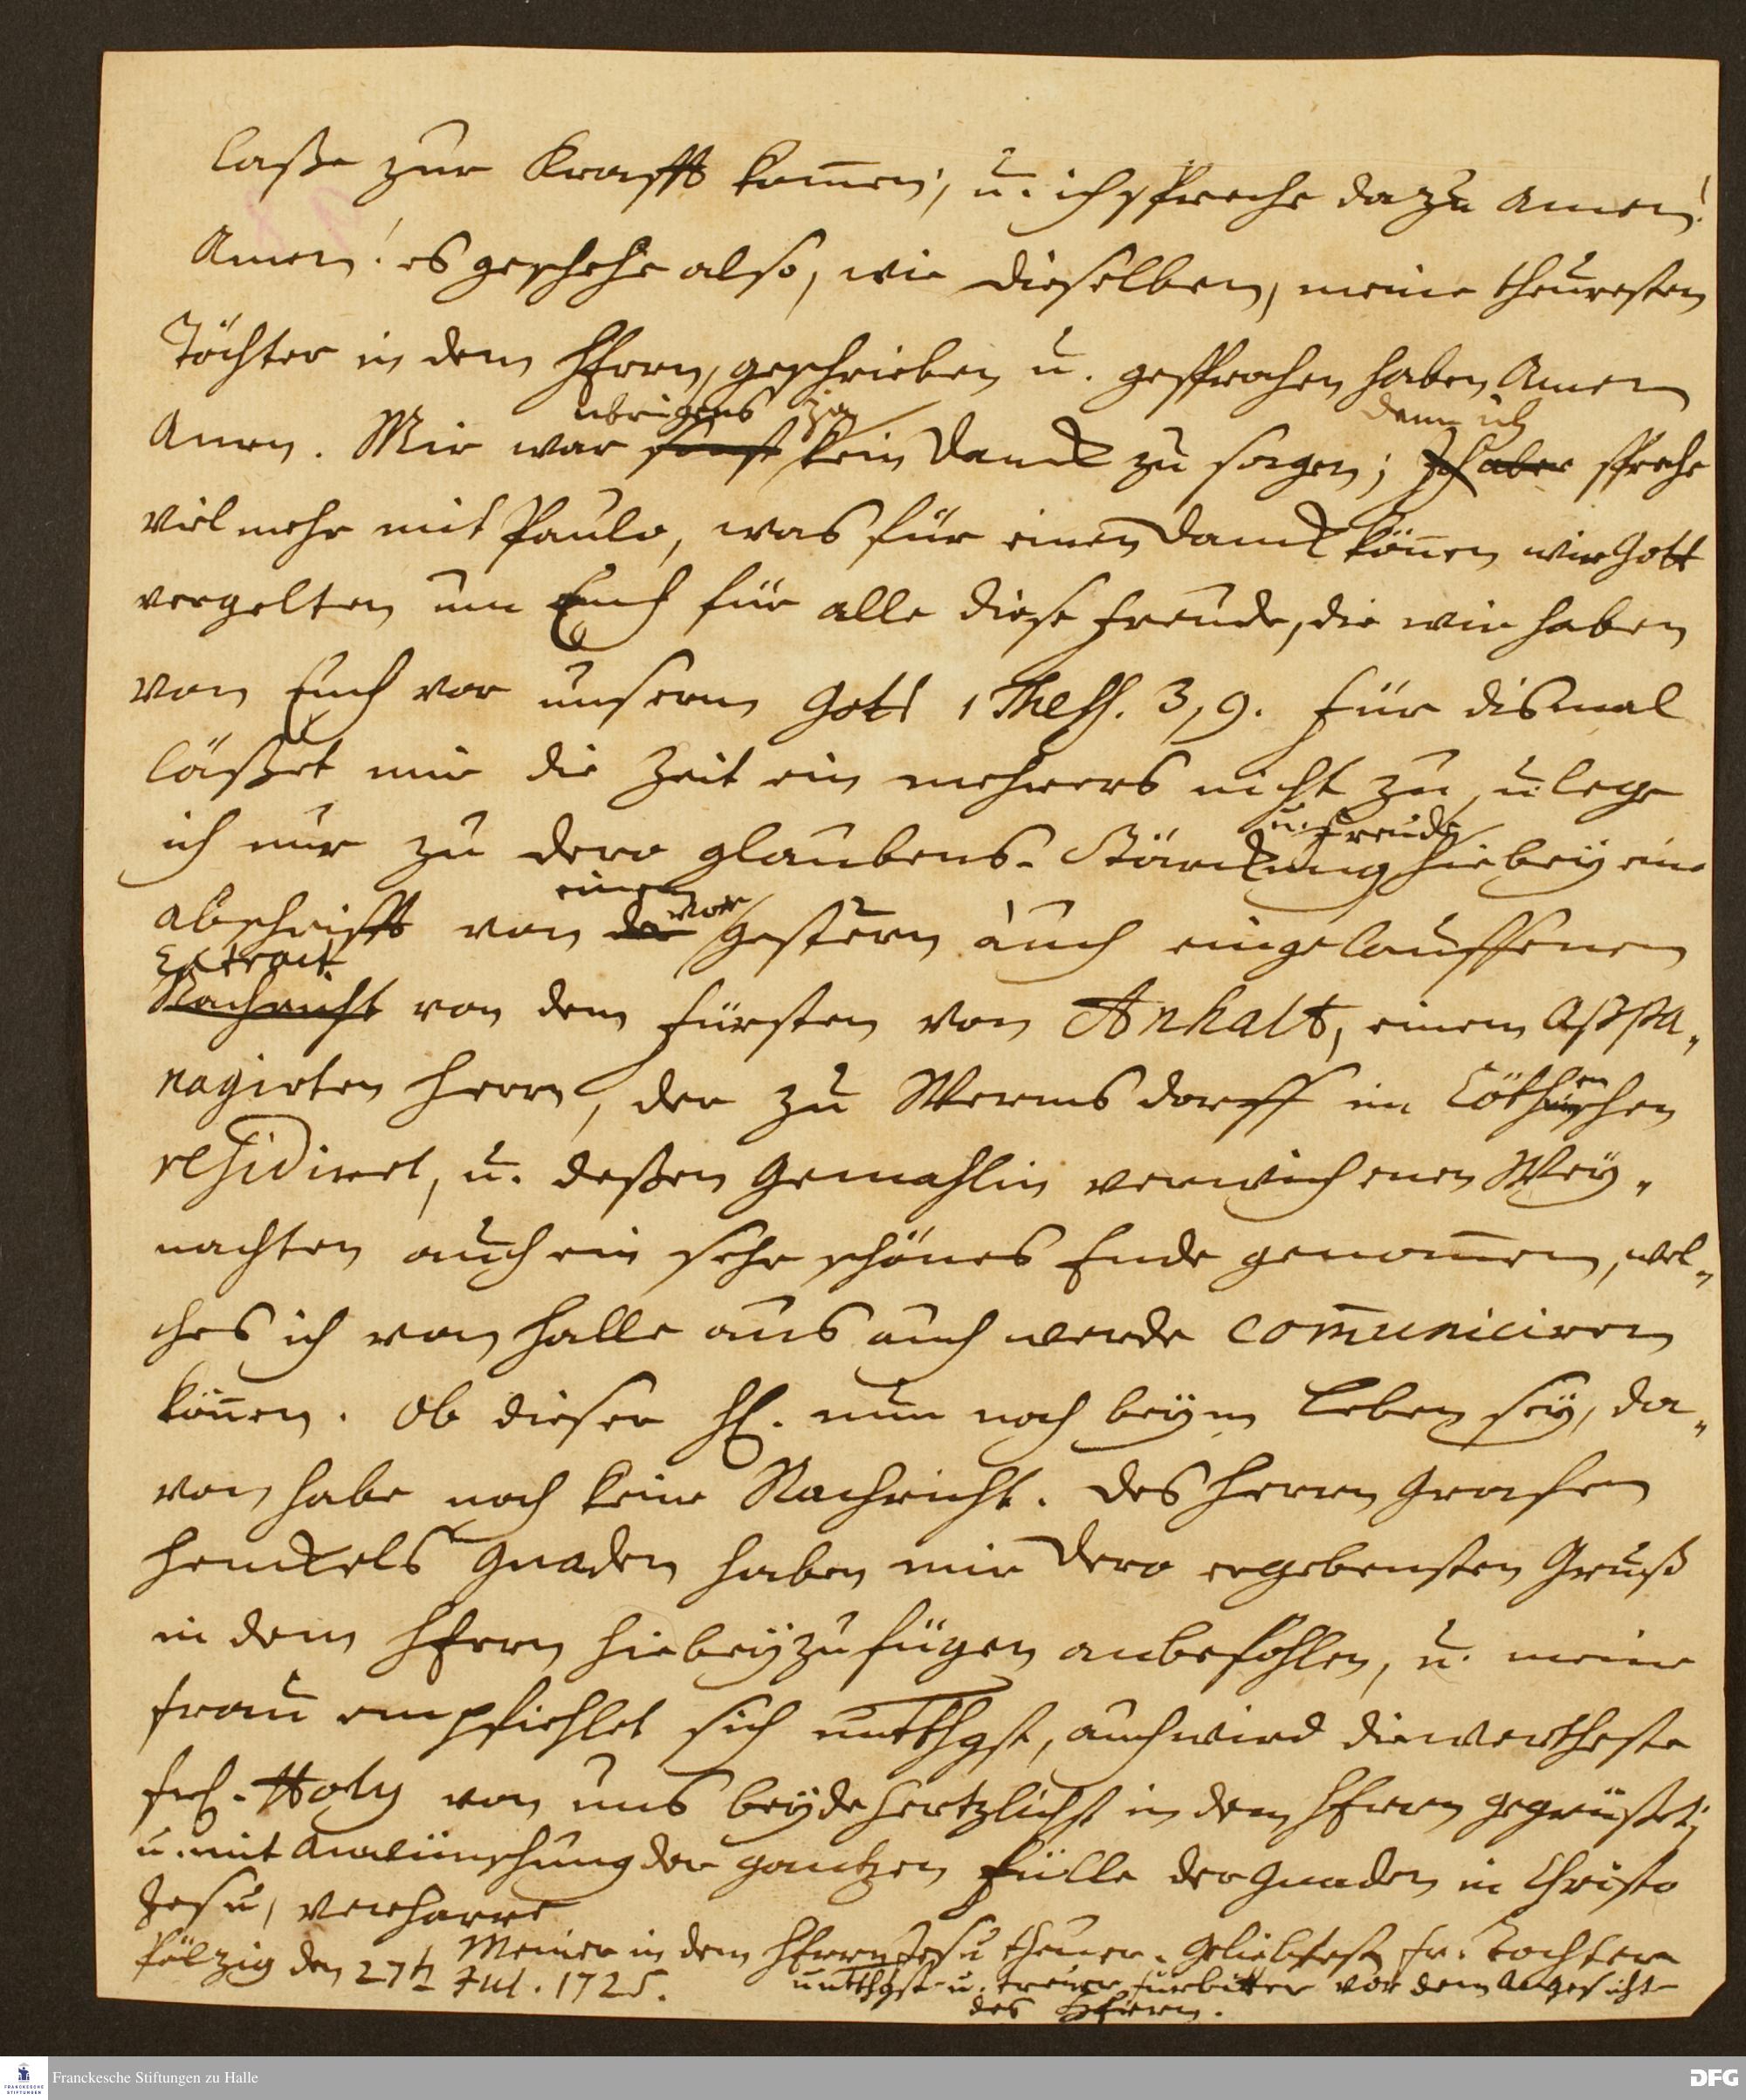 laße zur Krafft kom̄en; u. ich spreche dazu Amen!
Amen! es geschehe also, wie dieselben, meine theuresten
Töchter in dem HErrn, geschrieben u. gesprochen haben Amen
übrigens ja denn ich
Amen. Mir war sonst kein Danck zu sagen; Ich aber spreche
vielmehr mit Paulo, was für einen Danck kön̄en wir Gott
vergelten um Euch für alle diese Freude, die wir haben
von Euch vor unserm Gott 1 Thess. 3,9. Für dismal
läßet mir die Zeit ein mehrers nicht zu, u. lege
u. Freude
ich nur zu dero Glaubens-Stärckung hiebey eine
einem vor
Abschrifft von der gestern auch eingelauffenen
Extract
Nachricht von dem Fürsten von Anhalt, einem Appa„
nagirten Herrn, der zu Wermsdorff im Cöthenschen
residiret, u. deßen Gemahlin verwichenen Wey„
nachten auch ein sehr schönes Ende genom̄en, wel„
ches ich von Halle aus auch werde com̄uniciren
kön̄en. Ob dieser H. nun noch beym Leben sey, da„
von habe noch keine Nachricht. Des Herrn Grafen
Henckels Gnaden haben mir dero ergebensten Gruß
in dem HErrn hiebey zu fügen anbefohlen, u. meine
Frau empfiehlet sich untthgst, auch wird die wertheste
Frl. Holy von uns beyde hertzlichst in dem HErrn gegrüßet;
u. mit Anwünschung der gantzen Fülle der Gnaden in Christo
Jesu, verharre
Meiner in dem HErrn Jesu theuer-geliebtesten Fr. Tochter
Pölzig den 27ten Jul. 1725.
untthgst u. treuer Fürbitter vor dem Angesichte
des HErrn.
Franckesche Stiftungen zu Halle
FRANCKESCHE
STIFTUNGEN
DFG